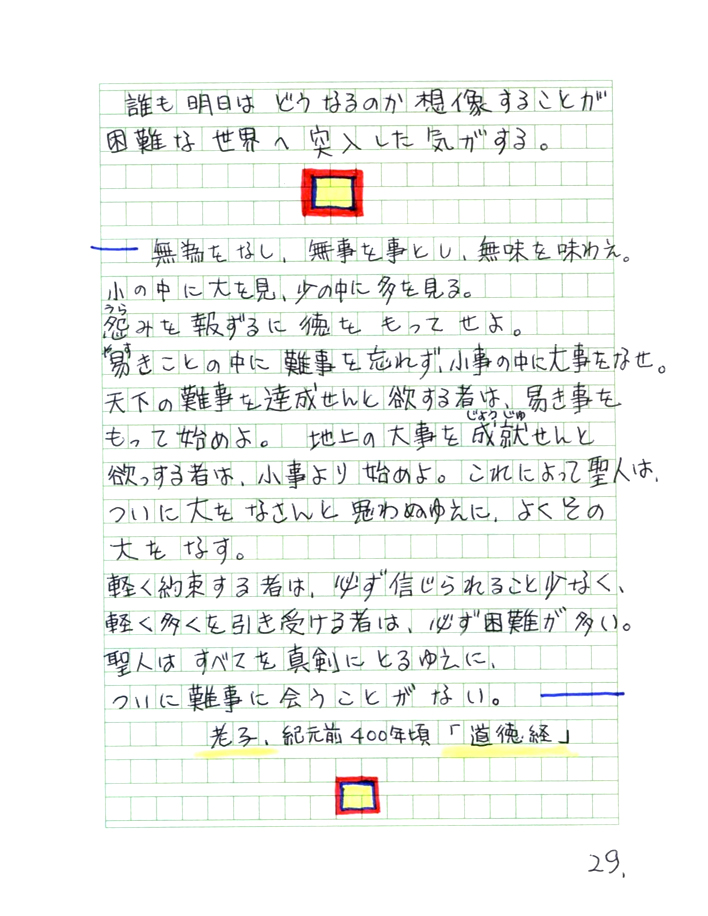 誰も明日はどうなるのか想像することが
困難な世界へ突入した気がする。
無為をなし、無事を事とし、無味を味わえ。
小の中に大を見、少の中に多を見る。
うら
怨みを報ずるに徳をもってせよ。
やす
易きことの中に難事を忘れず、小事の中に大事をなせ。
天下の難事を達成せんと欲する者は、易き事を
じょうじゅ
もって始めよ。 地上の大事を成就せんと
欲っする者は、小事より始めよ。これによって聖人は、
ついに大をなさんと思わぬゆえに、よくその
大をなす。
軽く約束する者は、必ず信じられること少なく、
軽く多くを引き受ける者は、必ず困難が多い。
聖人はすべてを真剣にとるゆえに、
ついに難事に会うことがない。
老子、紀元前400年頃「道徳経」
29.